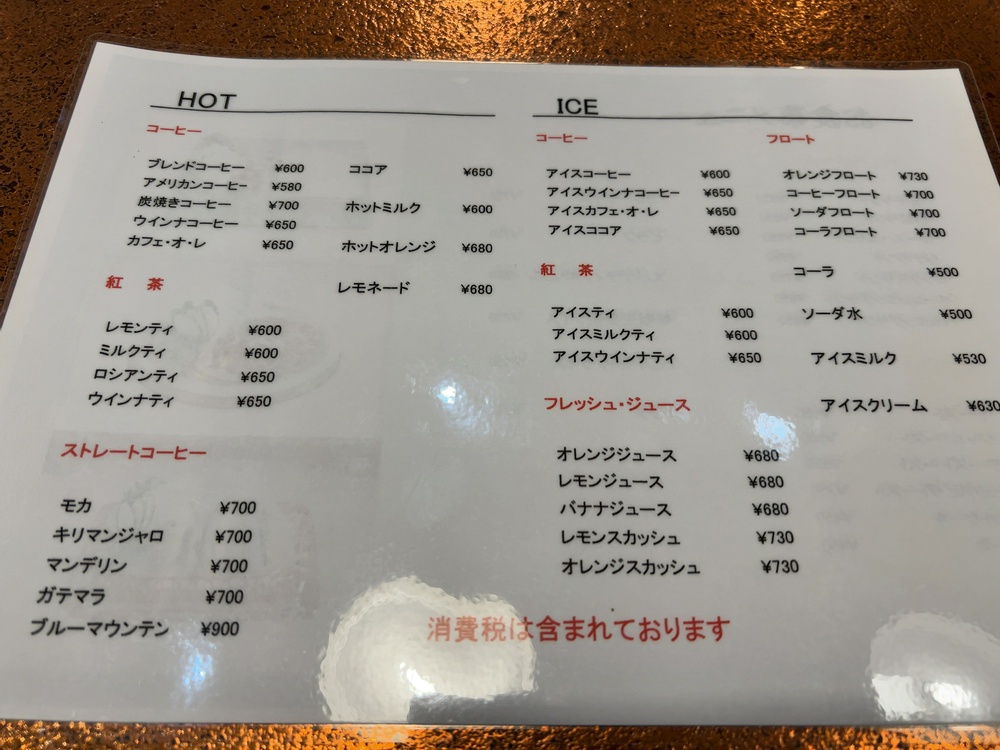 HOT
コーヒー
ブレンドコーヒー ¥600
アメリカンコーヒー ¥580
炭焼きコーヒー ¥700
ウインナコーヒー ¥650
カフェ・オ・レ ¥650
紅 茶
レモンティ ¥600
ミルクティ ¥600
ロシアンティ ¥650
ウインナティ ¥650
ストレートコーヒー
モカ ¥700
キリマンジャロ ¥700
マンデリン ¥700
ガテマラ ¥700
ブルーマウンテン ¥900
ココア ¥650
ホットミルク ¥600
ホットオレンジ ¥680
レモネード ¥680
ICE
コーヒー
アイスコーヒー ¥600
アイスウインナコーヒー ¥650
アイスカフェ・オ・レ ¥650
アイスココア ¥650
紅 茶
アイスティ ¥600
アイスミルクティ ¥600
アイスウインナティ ¥650
フレッシュ・ジュース
オレンジジュース ¥680
レモンジュース ¥680
バナナジュース ¥680
レモンスカッシュ ¥730
オレンジスカッシュ ¥730
フロート
オレンジフロート ¥730
コーヒーフロート ¥700
ソーダフロート ¥700
コーラフロート ¥700
コーラ ¥500
ソーダ水 ¥500
アイスミルク ¥530
アイスクリーム ¥630
消費税は含まれております